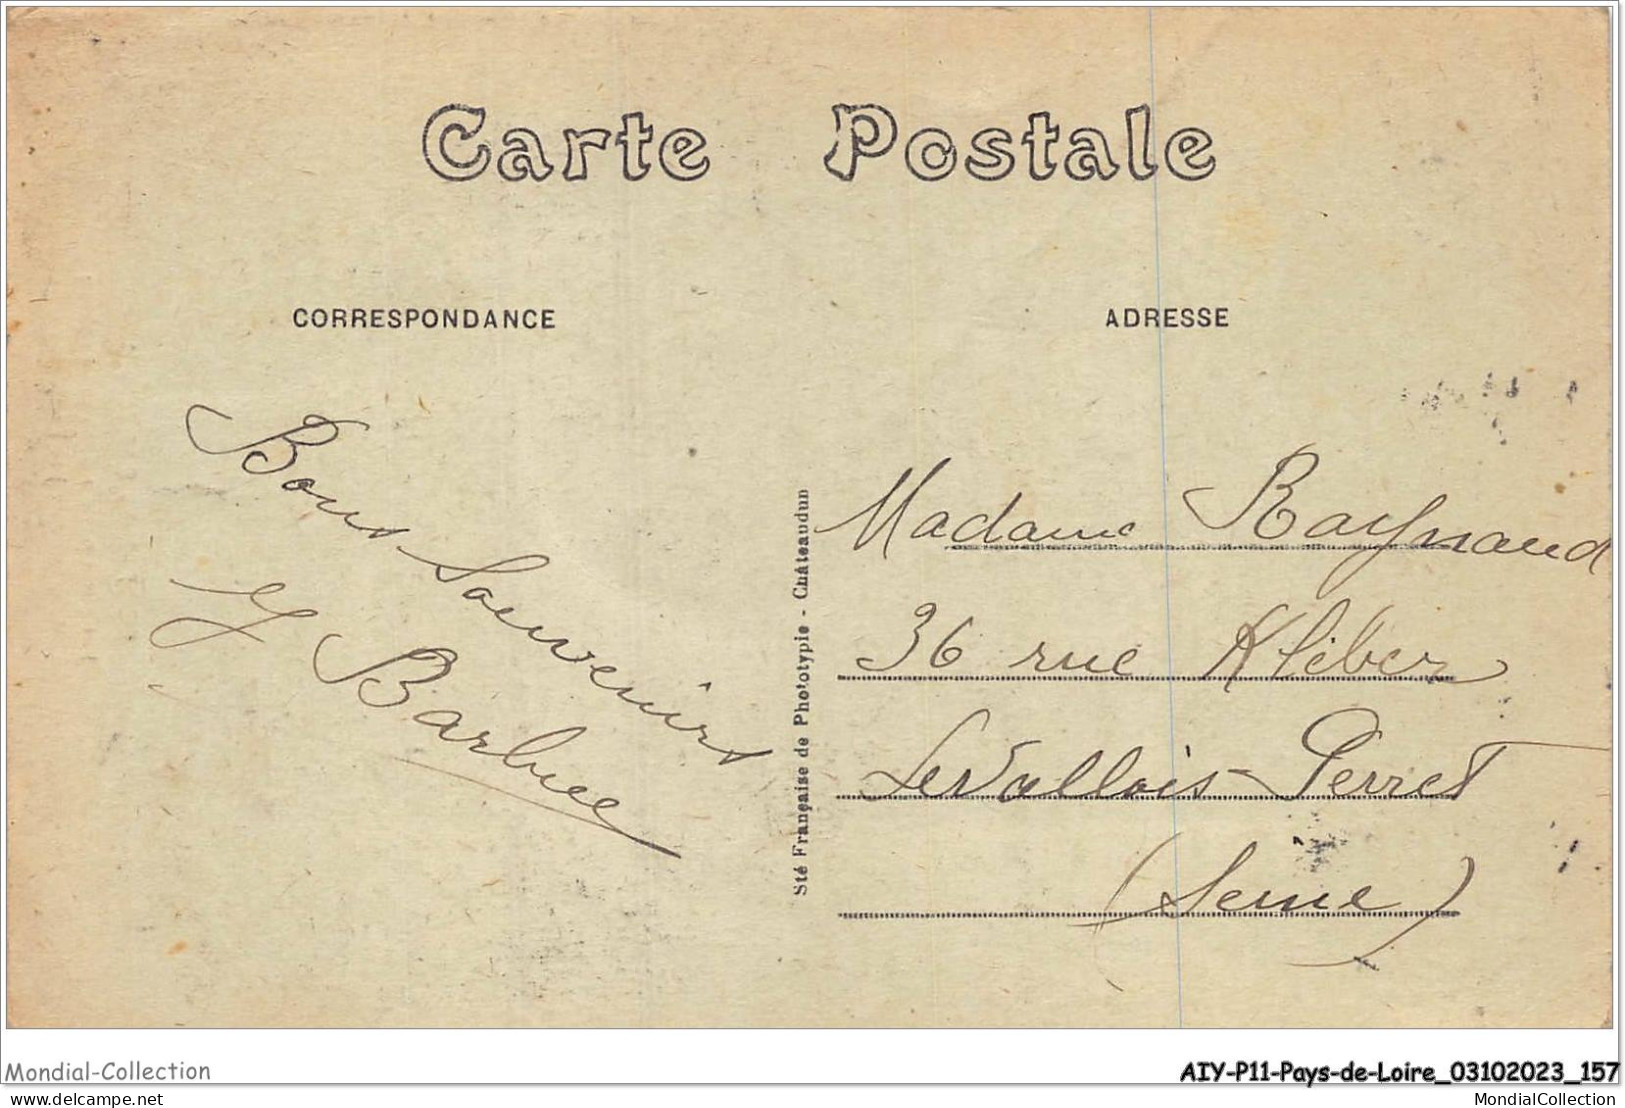 Carte Postale
CORRESPONDANCE
ADRESSE
Bons Souvenirs
J Barbee
Sté Française de Phototypie - Châteaudun
Madame Raynaud
36 rue Kléber
Levallois-Perret
(Seine)
Mondial-Collection
AIY-P11-Pays-de-Loire_03102023_157
delcampe.net
MondialCollection